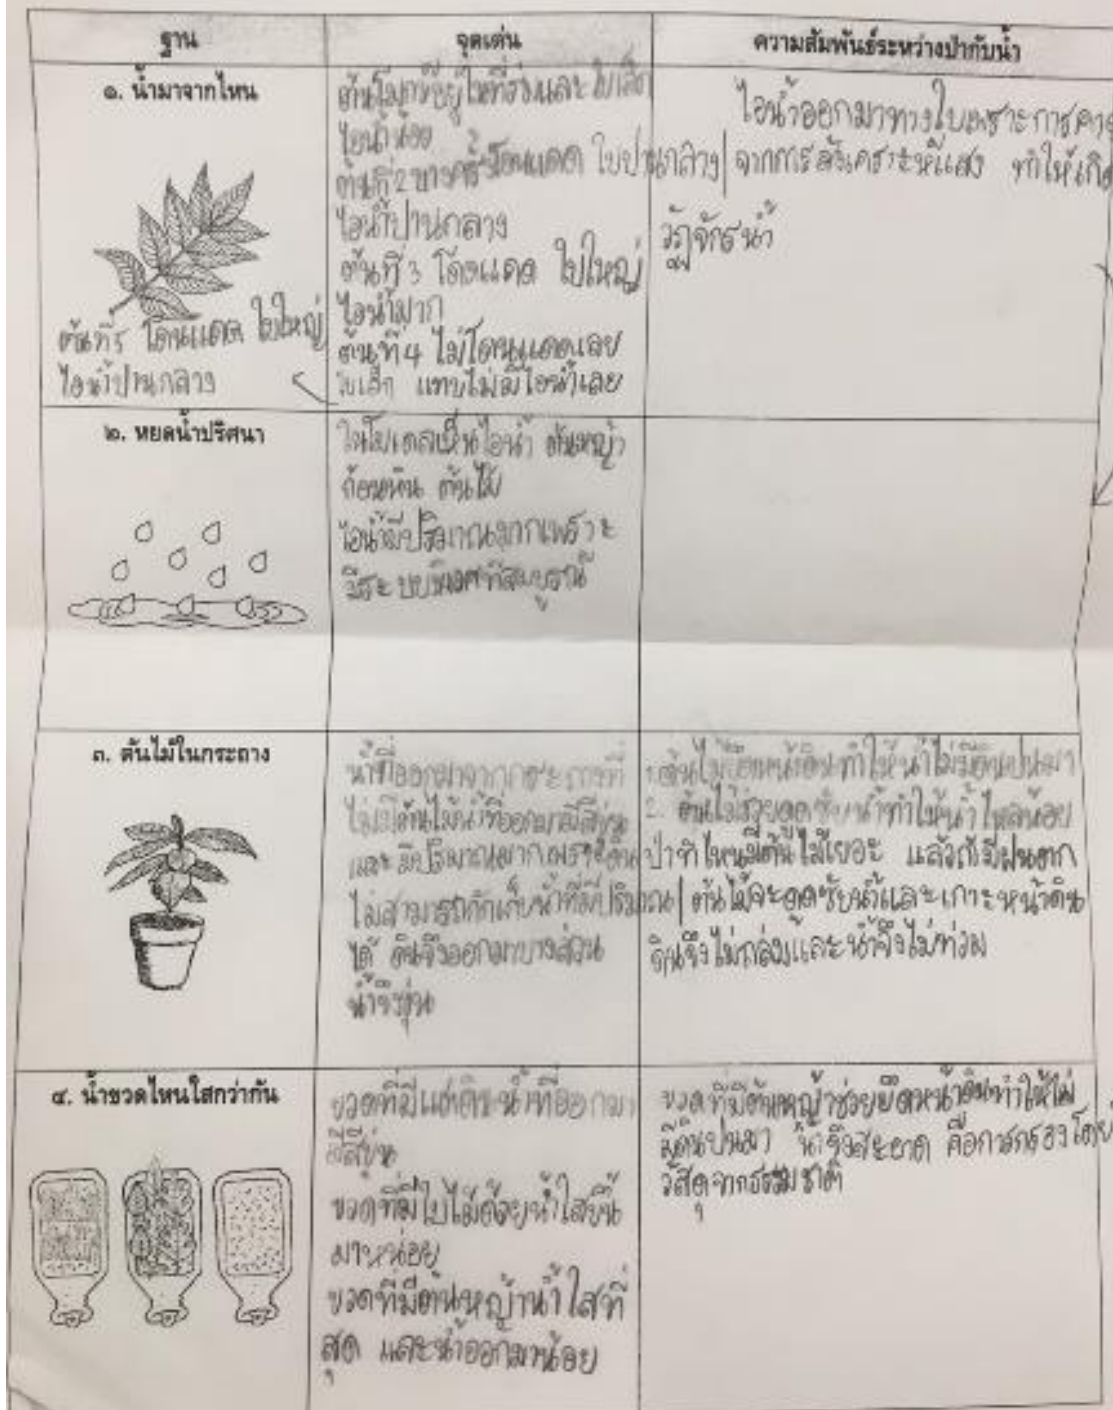 ฐาน
จุดเด่น
ความสัมพันธ์ระหว่างป่ากับน้ำ
๑. น้ำมาจากไหน
ต้นที่5 โดนแดด ใบใหญ่
ไอน้ำปานกลาง
อยู่ในที่ร่มและใบเล็ก
ไอน้ำน้อย
ต้นที่2บางครั้งโดนแดด ใบปานกลาง
ไอน้ำปานกลาง
ต้นที่3 โดนแดด ใบใหญ่
ไอน้ำมาก
ต้นที่4 ไม่โดนแดดเลย
ใบเล็ก แทบไม่มีไอน้ำเลย
ไอน้ำออกมาทางใบเพราะการคาย
จากการสังเคราะห์แสง ทำให้เกิด
วัฏจักรน้ำ
๒. หยดน้ำปริศนา
เห็นไอน้ำ ต้นหญ้า
ก้อนหิน ต้นไม้
ไอน้ำมีปริมาณมากเพราะ
มีระบบนิเวศที่สมบูรณ์
๓. ต้นไม้ในกระถาง
น้ำที่ออกมาจากกระถางที่
ไม่มีต้นไม้น้ำที่ออกมามีสีขุ่น
และมีปริมาณมากเพราะดิน
ไม่สามารถกักเก็บน้ำที่มีปริมาณ
ได้ ดินจึงออกมาบางส่วน
น้ำจึงขุ่น
1. ต้นไม้ยึดหน้าดินทำให้น้ำไม่มีดินปนมา
2. ต้นไม้ช่วยดูดซับน้ำทำให้น้ำไหลน้อย
ป่าที่ไหนมีต้นไม้เยอะ แล้วถ้ามีฝนตก
ต้นไม้จะดูดซับน้ำและเกาะหน้าดิน
ดินจึงไม่ถล่มและน้ำจึงไม่ท่วม
๔. น้ำขวดไหนใสกว่ากัน
ขวดที่มีแต่ดินน้ำที่ออกมา
มีสีขุ่น
ขวดที่มีใบไม้ด้วยน้ำใสขึ้น
มาหน่อย
ขวดที่มีต้นหญ้าน้ำใสที่
สุด และน้ำออกมาน้อย
ขวดที่มีต้นหญ้าช่วยยึดหน้าดินทำให้ไม่
มีดินปนมา น้ำจึงสะอาด คือการกรองโดย
วัสดุจากธรรมชาติ